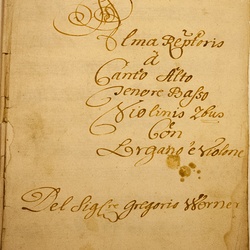 Alma Redptoris
à
Canto Alto
Tenore Basso
Violinis 2bus
Con
Organo e Violone
Del Sigre Gregorio Werner